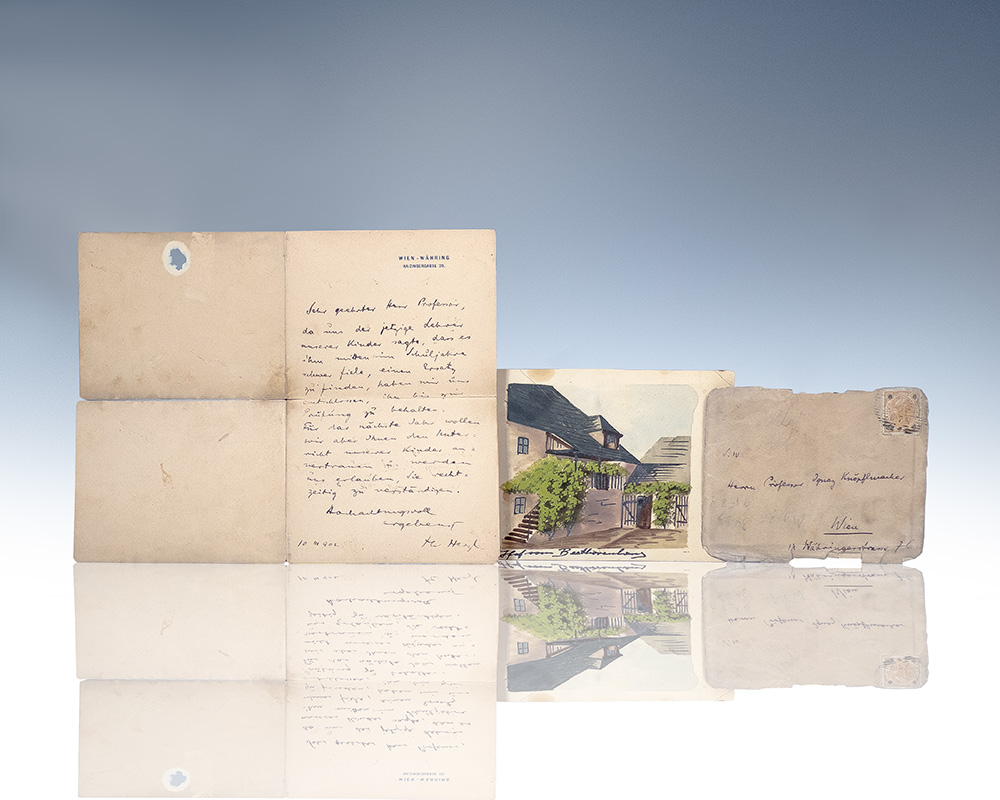 WIEN-WÄHRING
HAIZINGERGASSE 29.
Sehr geehrter Herr Professor,
da uns der jetzige Lehrer
unserer Kinder sagte, dass es
ihm mitten im Schuljahre
schwer fiele, einen Ersatz
zu finden, haben wir uns
entschlossen, ihn bis zur
Prüfung zu behalten.
Für das nächste Jahr wollen
wir aber Ihnen den Unter-
richt unserer Kinder an-
vertrauen u. werden
uns erlauben, Sie recht-
zeitig zu verständigen.
Hochachtungsvoll
ergebenst
Th Herzl
Hof vom Beethovenhaus
S.W.
Herrn Professor Ignaz Knöpfmacher
Wien
Währingerstrasse